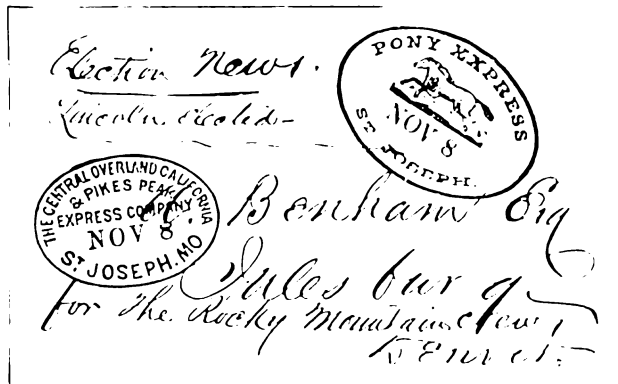 Election News.
Lincoln elected
PONY EXPRESS
NOV 8
ST JOSEPH.
THE CENTRAL OVERLAND CALIFORNIA
& PIKES PEAK
EXPRESS COMPANY
NOV 8
ST JOSEPH. MO
Benham Esq
Julesburg
for the Rocky Mountain News
Denver